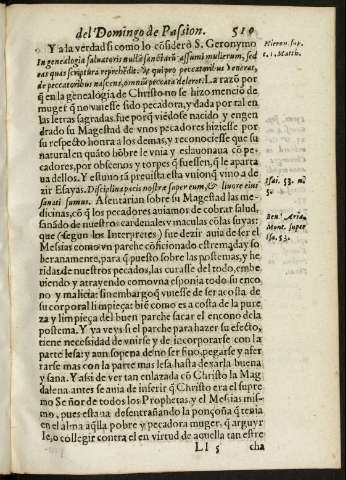 del Domingo de Passion. 519
Y a la verdad si como lo cōsideró S. Geronymo
In genealogia saluatoris nulla sanctarū assumi mulierum, sed
eas quas scriptura reprehēdit: vt qui propter peccatoribus venerat,
de peccatoribus nascens, omniū peccata deleret. La razō por
q̄ en la genealogia de Christo no se hizo menciō de
muger q̄ no vuiesse sido pecadora, y dada por tal en
las letras sagradas, fue porq̄ viēdose nacido y engen
drado su Magestad de vnos pecadores hiziesse por
su respecto honra a los demas, y reconociesse que su
natural en quāto hōbre le vnia y eslauonaua cō pe-
cadores, por obscenos y torpes q̄ fuessen, q̄ le aparta
ua dellos. Y estuuo tā preuista esta vniō que vino a de
zir Esayas. Disciplina pacis nostræ super eum, & liuore eius
sanati sumus. Assentarian sobre su Magestad las me-
dicinas, cō q̄ los pecadores auiamos de cobrar salud,
sanādo de nuestros cardenales y maculas cō las suyas:
que (segun los Interpretes) fue dezir auia de ser el
Messias como vn parche cōficionado estremada y so
beranamente, para q̄ puesto sobre las postemas, y he
ridas de nuestros pecados, las curasse del todo, embe
uiendo y atrayendo como vna esponja todo su enco
no y malicia: sin embargo q̄ vuiesse de ser a costa de
su corporal limpieça: biē como es a costa de la pure
za y limpieça del buen parche sacar el encono de la
postema. Y ya veys si el parche para hazer su efecto,
tiene necessidad de vnirse y de incorporarse con la
parte lesa: y aun so pena de no ser fino, pegarse y afer
rarse mas con la parte mas lesa hasta dexarla buena
y sana. Y assi de ver tan enlazada cō Christo la Mag
dalena antes se auia de inferir q̄ Christo era el supre
mo Señor de todos los Prophetas, y el Messias mis-
mo, pues estaua desentrañando la ponçoña q̄ tenia
en el alma aq̄lla pobre y pecadora muger, q̄ arguyr
le, o collegir contra el en virtud de aquella tan estre
Ll 5 cha
Hieron. sup.
c. 1. Matth.
Isai. 53. nu
5.
Ben. Arias
Mont. super
Isa. 53.